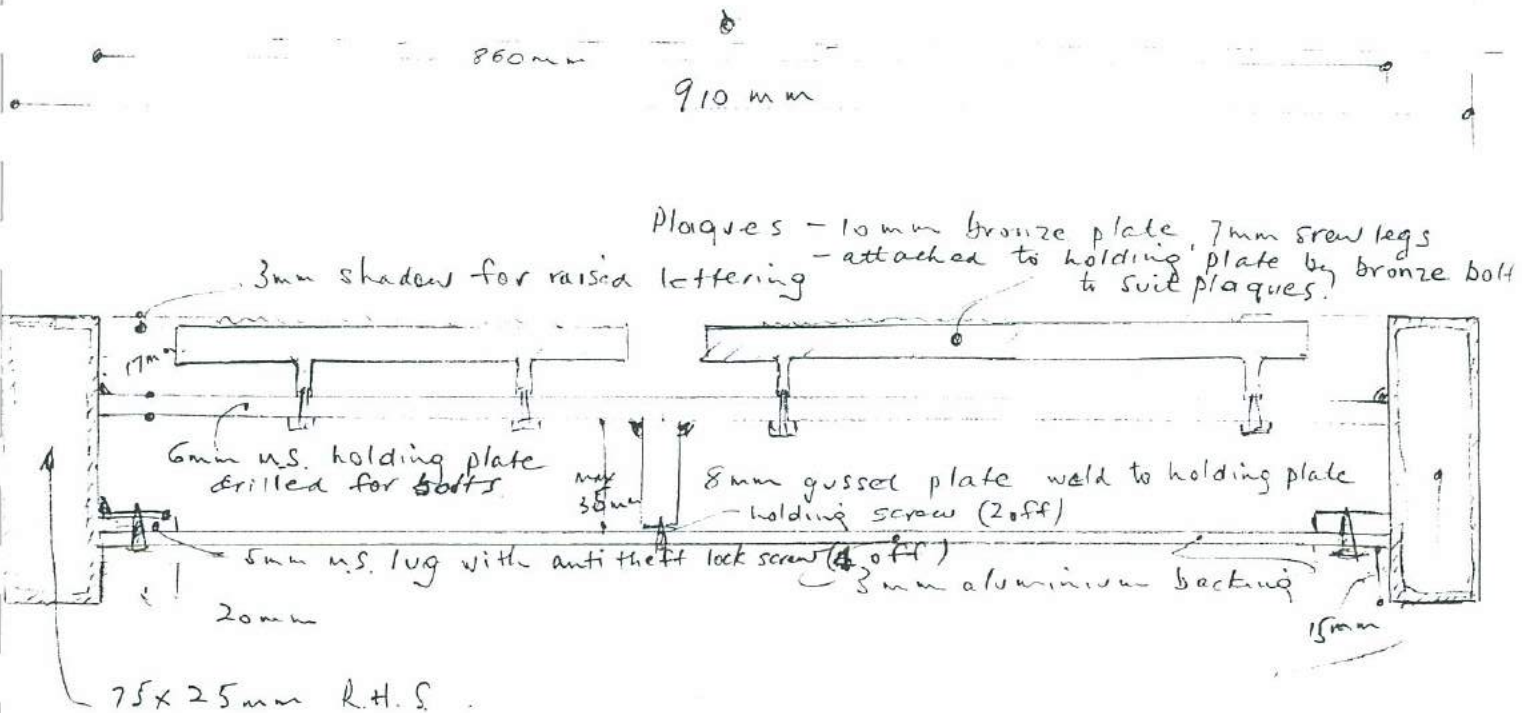 860mm
910 mm
Plaques - 10mm bronze plate, 7mm srew legs
- attached to holding plate by bronze bolt
to suit plaques.
3mm shadow for raised lettering
17mm
6mm M.S. holding plate
drilled for bolts
max
35mm
8mm gusset plate weld to holding plate
- holding screw (2 off)
5mm M.S. lug with anti theft lock screw (4 off)
3mm aluminium backing
20mm
15mm
75x25mm R.H.S.